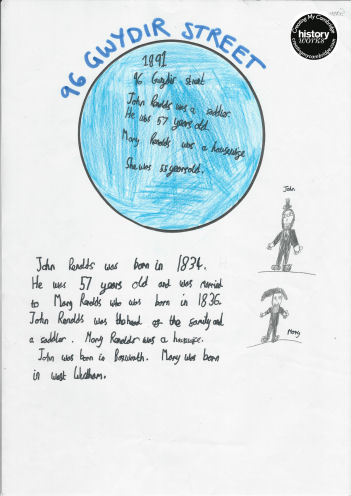 Creating My Cambridge
history
works
creatingmycambridge.com
96 GWYDIR STREET
1891
96 Gwydir street
John Ronalds was a saddler.
He was 57 years old.
Mary Ronalds was a housewife
She was 55 years old.
John
John Ronalds was born in 1834.
He was 57 years old and was married
to Mary Ronalds who was born in 1836.
John Ronalds was the head of the family and
a saddler. Mary Ronalds was a housewife.
John was born in Bosworth. Mary was born
in west Wickham.
Mary